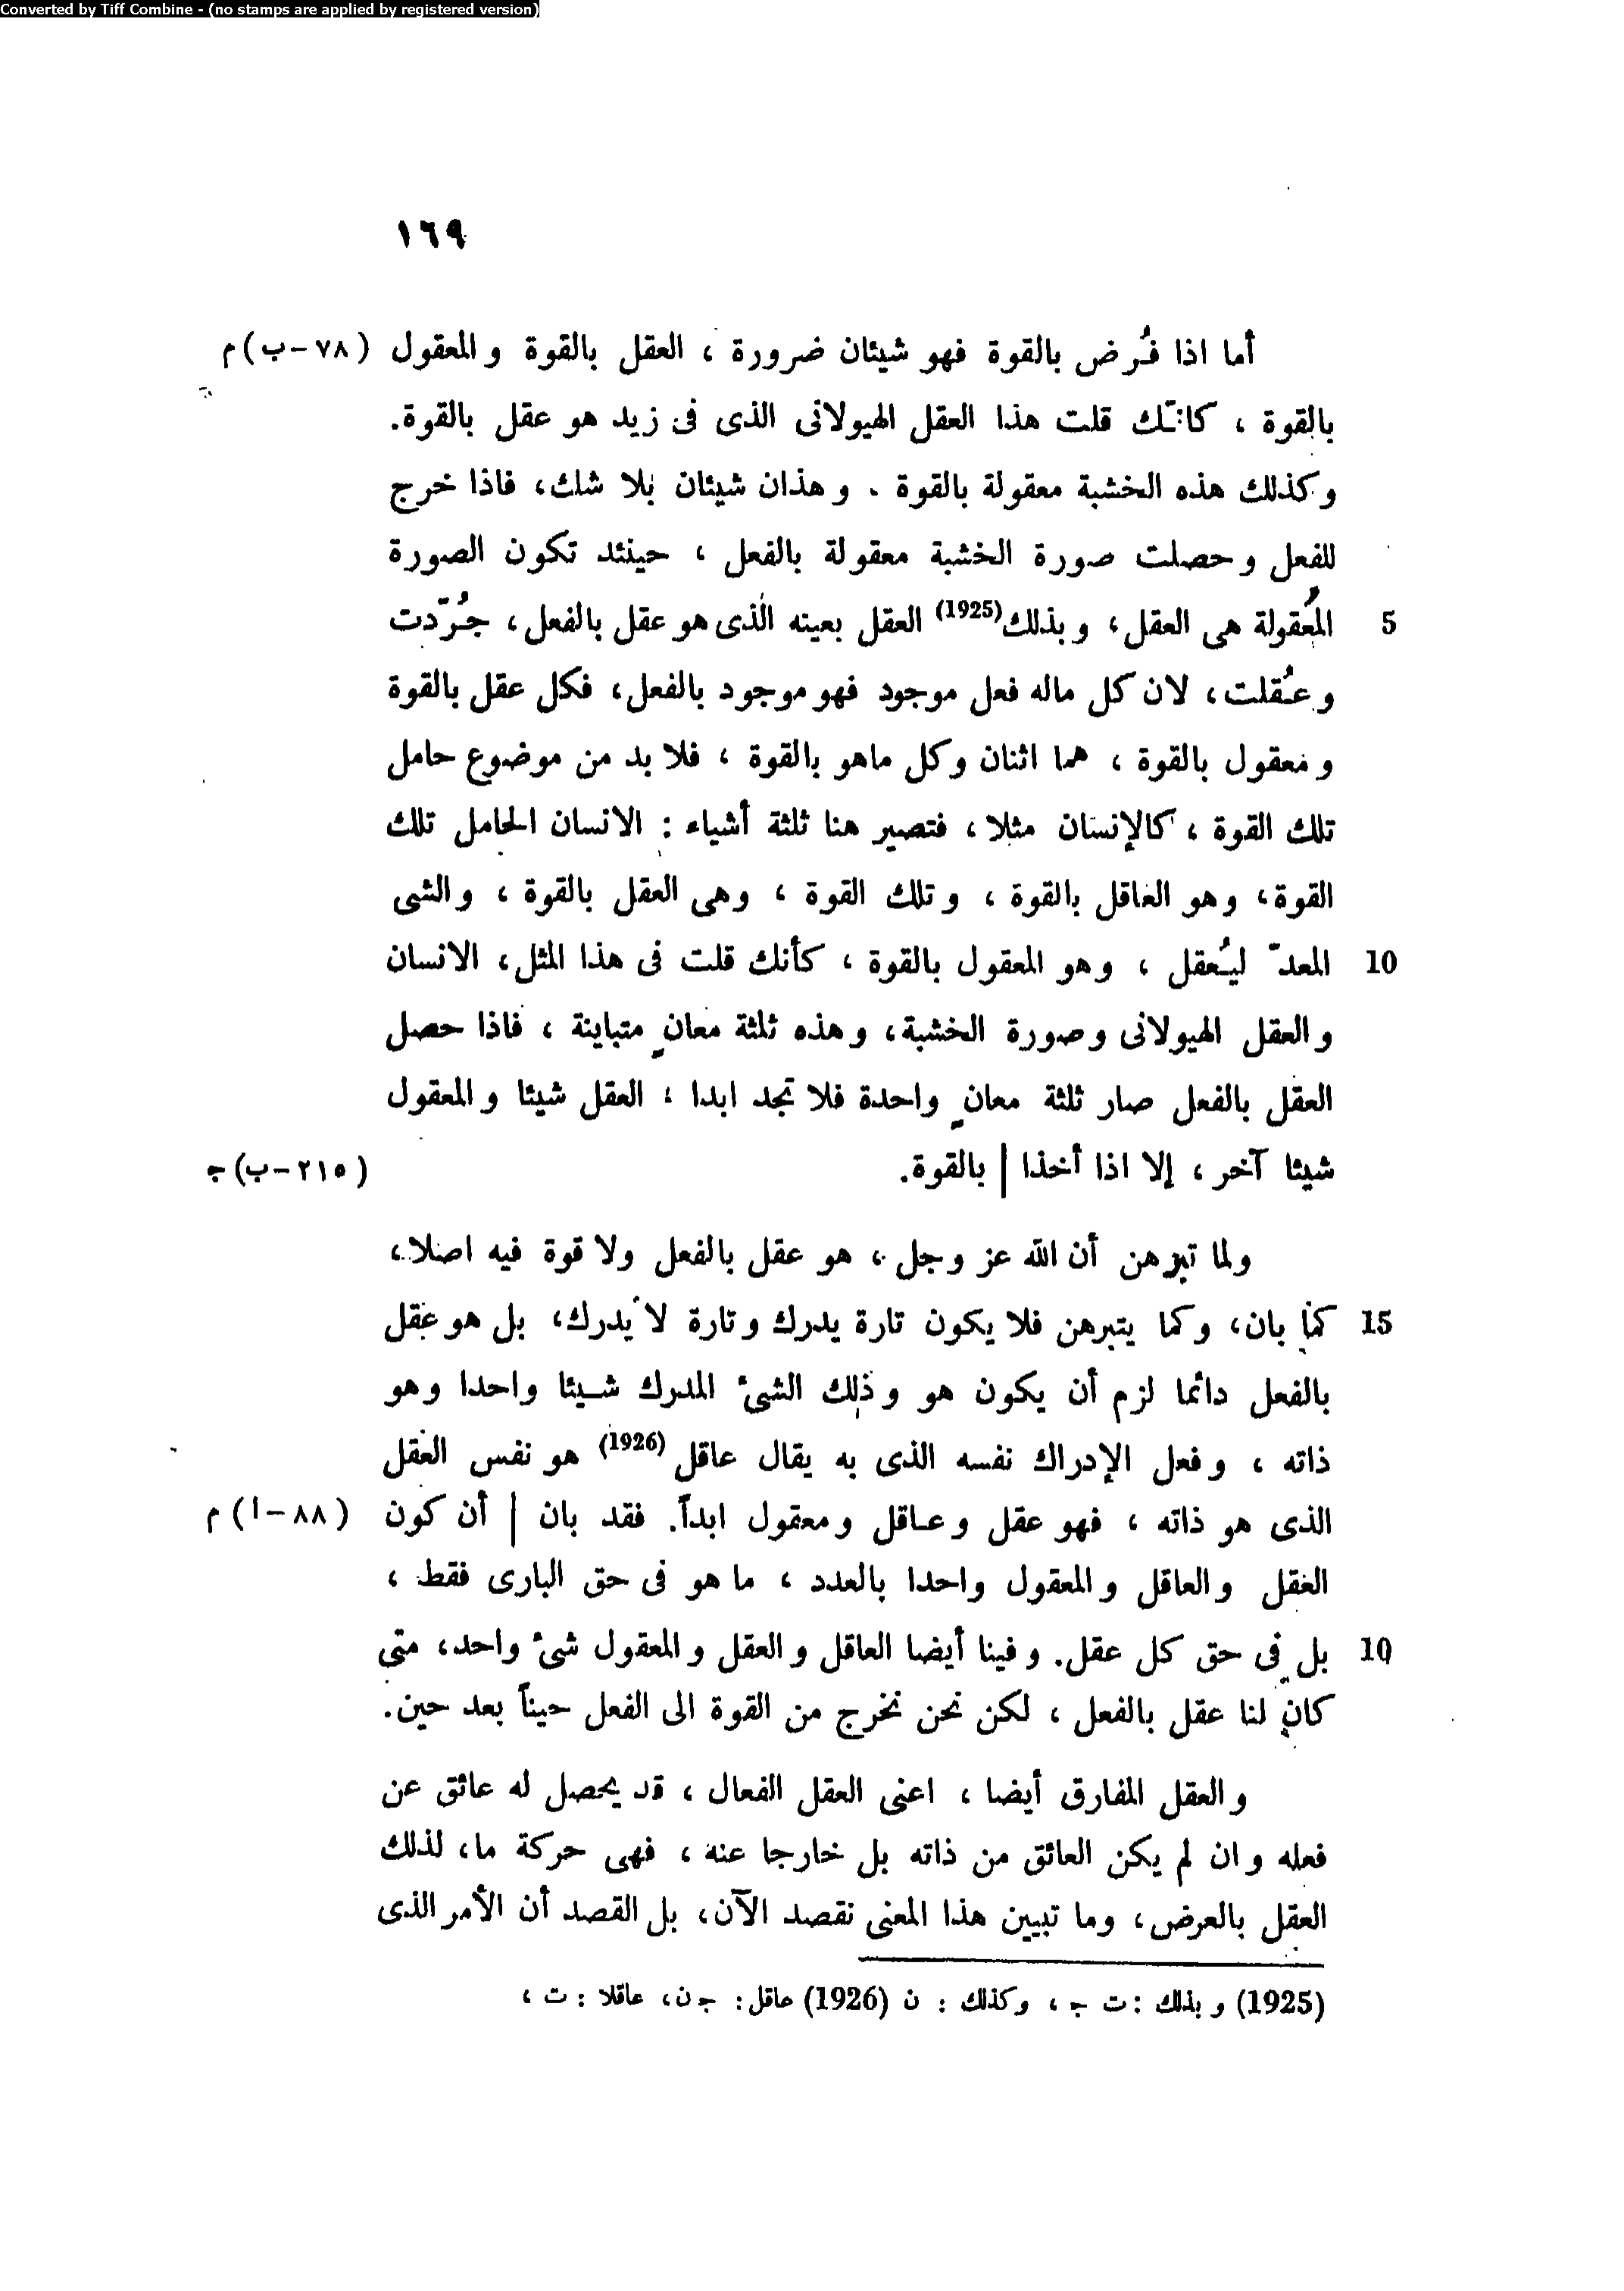 Converted by Tiff Combine - (no stamps are applied by registered version)
١٦٩
أما اذا فُرض بالقوة فهو شيئان ضرورة ، العقل بالقوة و المعقول (٧٨-ب) م
بالقوة ، كانّك قلت هذا العقل الهيولانى الذى فى زيد هو عقل بالقوة.
و كذلك هذه الخشبة معقولة بالقوة . و هذان شيئان بلا شك، فاذا خرج
للفعل و حصلت صورة الخشبة معقولة بالفعل ، حينئد تكون الصورة
5 المعُقولة هى العقل، و بذلك(1925) العقل بعينه الذى هو عقل بالفعل، جُرّدت
و عُقلت، لان كل ماله فعل موجود فهو موجود بالفعل، فكل عقل بالقوة
و معقول بالقوة ، هما اثنان وكل ماهو بالقوة ، فلا بد من موضوع حامل
تلك القوة ، كالإنسان مثلا ، فتصير هنا ثلثة أشياء : الانسان الحامل تلك
القوة، و هو العاقل بالقوة ، و تلك القوة ، وهى العقل بالقوة ، و الشى
10 المعدّ ليُعقل ، و هو المعقول بالقوة ، كأنك قلت فى هذا المثل، الانسان
و العقل الهيولانى و صورة الخشبة، و هذه ثلثة معانٍ متباينة ، فاذا حصل
العقل بالفعل صار ثلثة معانٍ واحدة فلا تجد ابدا ، العقل شيئا و المعقول
شيئا آخر ، إلا اذا أخذا | بالقوة. (٢١٥-ب) ج
ولما تبرهن أن الله عز و جل ، هو عقل بالفعل ولا قوة فيه اصلا،
15 كما بان، و كما يتبرهن فلا يكون تارة يدرك و تارة لا يدرك، بل هو عقل
بالفعل دائما لزم أن يكون هو و ذلك الشىٔ المدرك شيئا واحدا وهو
ذاته ، و فعل الإدراك نفسه الذى به يقال عاقل (1926) هو نفس العقل
الذى هو ذاته ، فهو عقل و عاقل و معقول ابداً. فقد بان | أن كون (٨٨-ا) م
العقل و العاقل و المعقول واحدا بالعدد ، ما هو فى حق البارى فقط ،
10 بل فى حق كل عقل. و فينا أيضا العاقل و العقل و المعقول شىٔ واحد، متى
كان لنا عقل بالفعل ، لكن نحن نخرج من القوة الى الفعل حيناً بعد حين.
و العقل المفارق أيضا ، اعنى العقل الفعال ، قد يحصل له عائق عن
فعله و ان لم يكن العائق من ذاته بل خارجا عنه ، فهى حركة ما، لذلك
العقل بالعرض، وما تبيين هذا المعنى نقصد الآن، بل القصد أن الأمر الذى
(1925) و بذلك : ت ج ، وكذلك : ن (1926) عاقل : ج ن، عاقلا : ت ،